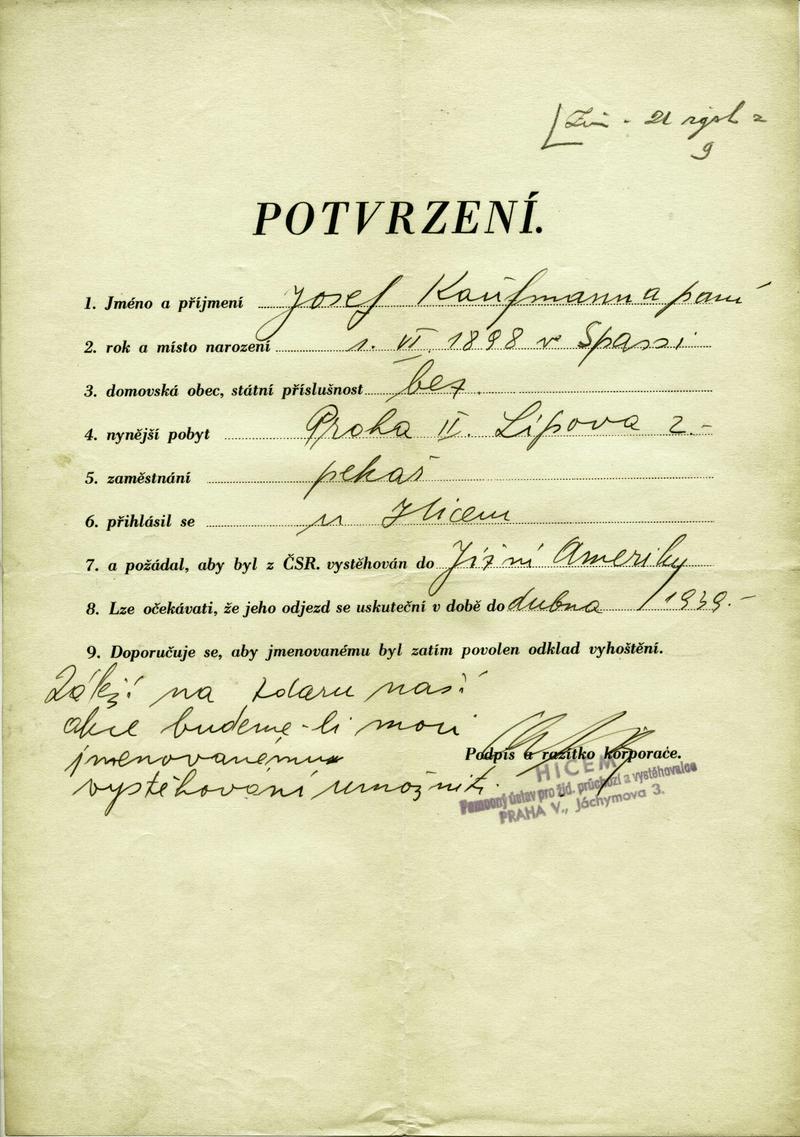 21
9
POTVRZENÍ.
1. Jméno a příjmení Josef Kaufmann a paní
2. rok a místo narození 1. VI. 1898 v Spassi
3. domovská obec, státní příslušnost bez.
4. nynější pobyt Praha II. Lípova 2.-
5. zaměstnání pekař
6. přihlásil se u Hicem
7. a požádal, aby byl z ČSR. vystěhován do Jižní Ameriky
8. Lze očekávati, že jeho odjezd se uskuteční v době do dubna 1939.-
9. Doporučuje se, aby jmenovanému byl zatím povolen odklad vyhoštění.
Záleží na zdaru naší
akce budeme-li moci
jmenovanému
vystěhování umožniti.
Podpis a razítko korporace.
HICEM
Pomocný ústav pro žid. průchozí a vystěhovalce
PRAHA V., Jáchymova 3.